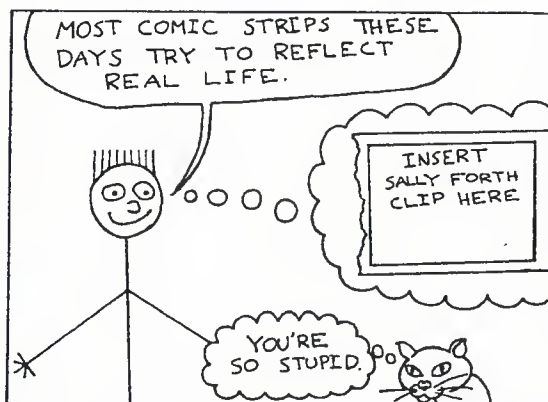 MOST COMIC STRIPS THESE
DAYS TRY TO REFLECT
REAL LIFE.
INSERT
SALLY FORTH
CLIP HERE
YOU'RE
SO STUPID.